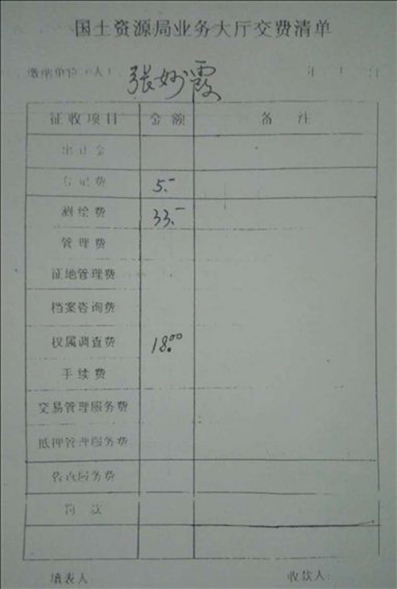 国土资源局业务大厅交费清单
缴纳单位(人) 张妙霞 年 月 日
征收项目 金额 备注
出让金
登记费 5.-
测绘费 33.-
管理费
征地管理费
档案咨询费
权属调查费 18.00
手续费
交易管理服务费
抵押管理服务费
咨询服务费
罚款
填表人 收款人